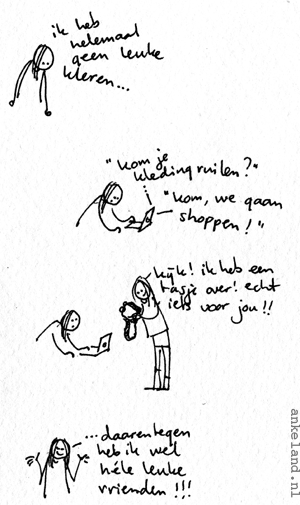 ik heb
helemaal
geen leuke
kleren...
"kom je
kledingruilen?"
"kom, we gaan
shoppen!"
kijk! ik heb een
tasje over! echt
iets voor jou!!
...daarentegen
heb ik wel
héle leuke
vrienden!!!
ankeland.nl